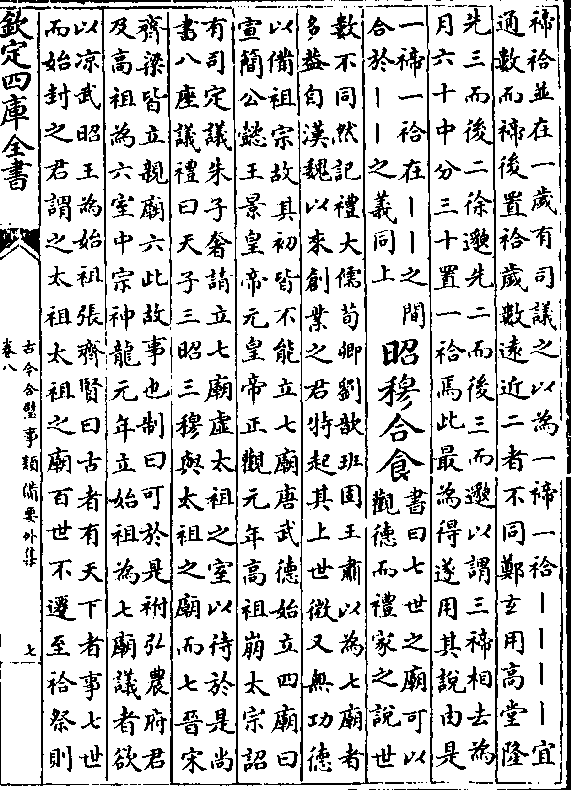 禘祫並在一歲有司議之以為一禘一祫丨丨丨丨宜
通數而禘後置祫歲數遠近二者不同鄭玄用高堂隆
先三而後二徐邈先二而後三而邈以謂三禘相去為
月六十中分三十置一祫焉此最為得遂用其說由是
一禘一祫在丨丨之間
合於丨丨之義同上
昭穆合食
書曰七世之廟可以
觀德而禮家之說世
數不同然記禮大儒荀卿劉歆班固王肅以為七廟者
多蓋自漢魏以來創業之君特起其上世微又無功德
以備祖宗故其初皆不能立七廟唐武德始立四廟曰
宣簡公懿王景皇帝元皇帝正觀元年高祖崩太宗詔
有司定議朱子奢請立七廟虛太祖之室以待於是尚
書八座議禮曰天子三昭三穆與太祖之廟而七晉宋
齊梁皆立親廟六此故事也制曰可於是祔弘農府君
及高祖為六室中宗神龍元年立始祖為七廟議者欲
以凉武昭王為始祖張齊賢曰古者有天下者事七世
而始封之君謂之太祖太祖之廟百世不遷至祫祭則
欽定四庫全書
古今合璧事類備要外集
卷八
七